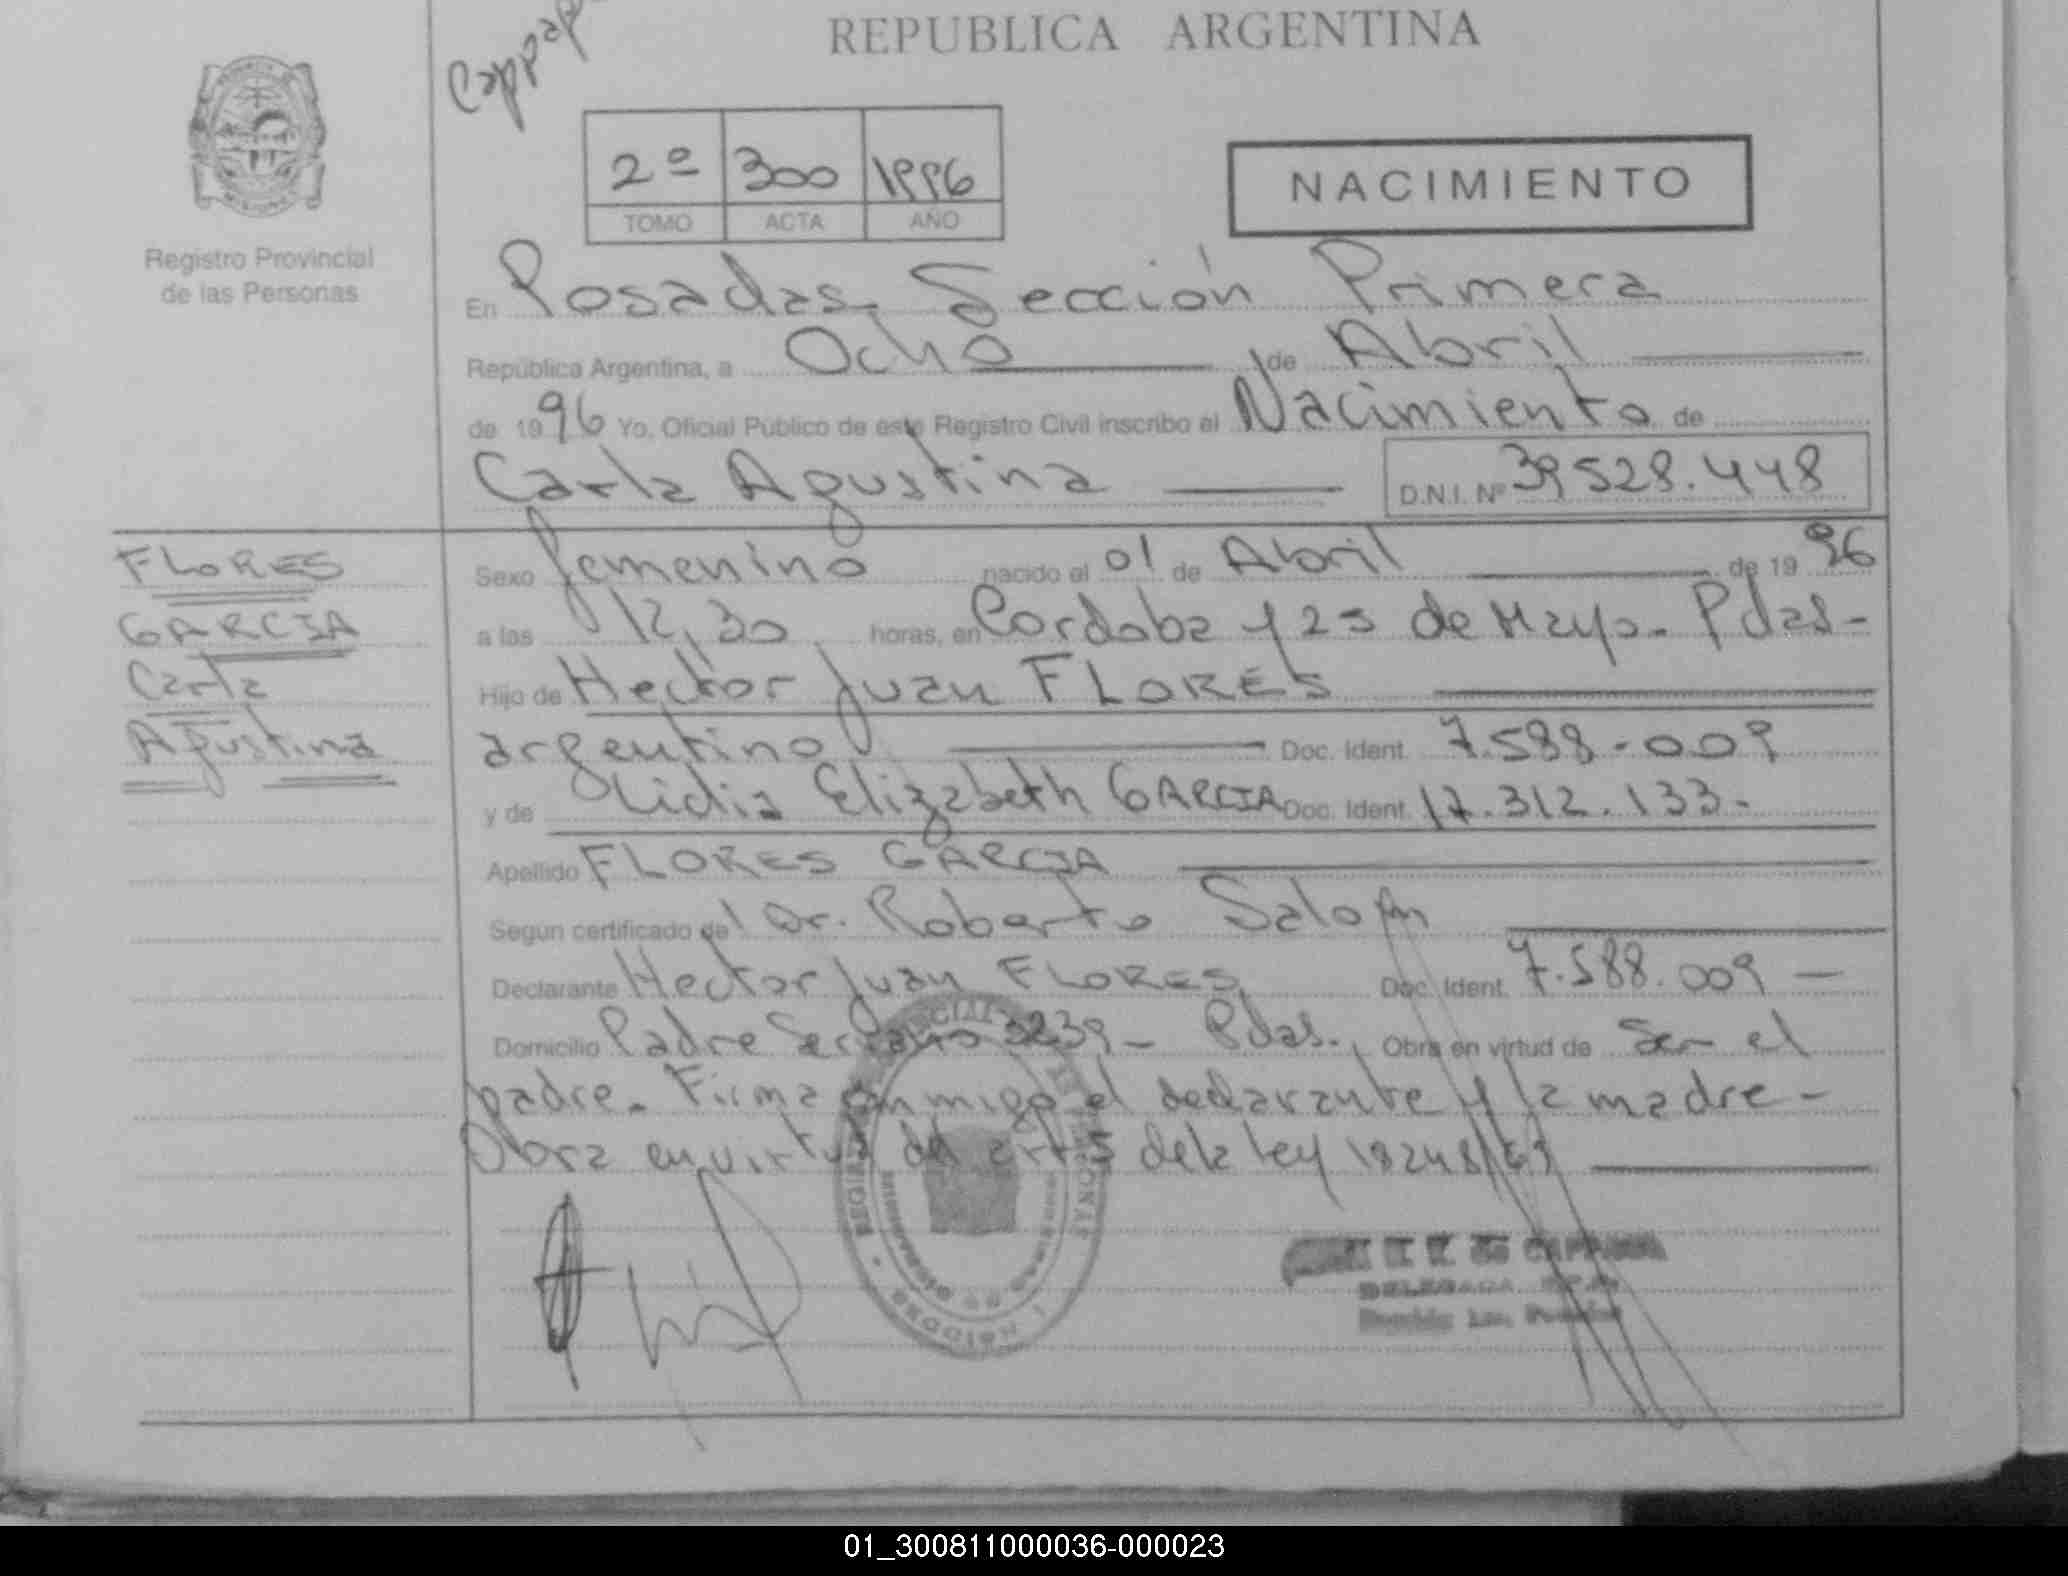 REPUBLICA ARGENTINA
2º 300 1996
TOMO ACTA AÑO
NACIMIENTO
Registro Provincial
de las Personas
En Posadas, Sección Primera
República Argentina, a Ocho de Abril
de 1996 Yo, Oficial Público de este Registro Civil inscribo el Nacimiento de
Carla Agustina D.N.I. Nº 39528.448
FLORES
GARCIA
Carla
Agustina
Sexo femenino nacido el 01 de Abril de 1996
a las 12,30 horas, en Cordoba y 25 de Mayo. Pdas-
Hijo de Hector Juan FLORES
argentino Doc. Ident. 7.588.009
y de Lidia Elizabeth GARCIA Doc. Ident. 17.312.133-
Apellido FLORES GARCIA
Según certificado del Dr. Roberto
Declarante Hector Juan FLORES Doc. Ident. 7.588.009
Domicilio Padre Serrano 3239- Pdas., Obra en virtud de Ser el
padre. Firma conmigo el declarante y la madre-
Obra en virtud del art 5 de la ley 18248/69
DELEGADA
01_300811000036-000023